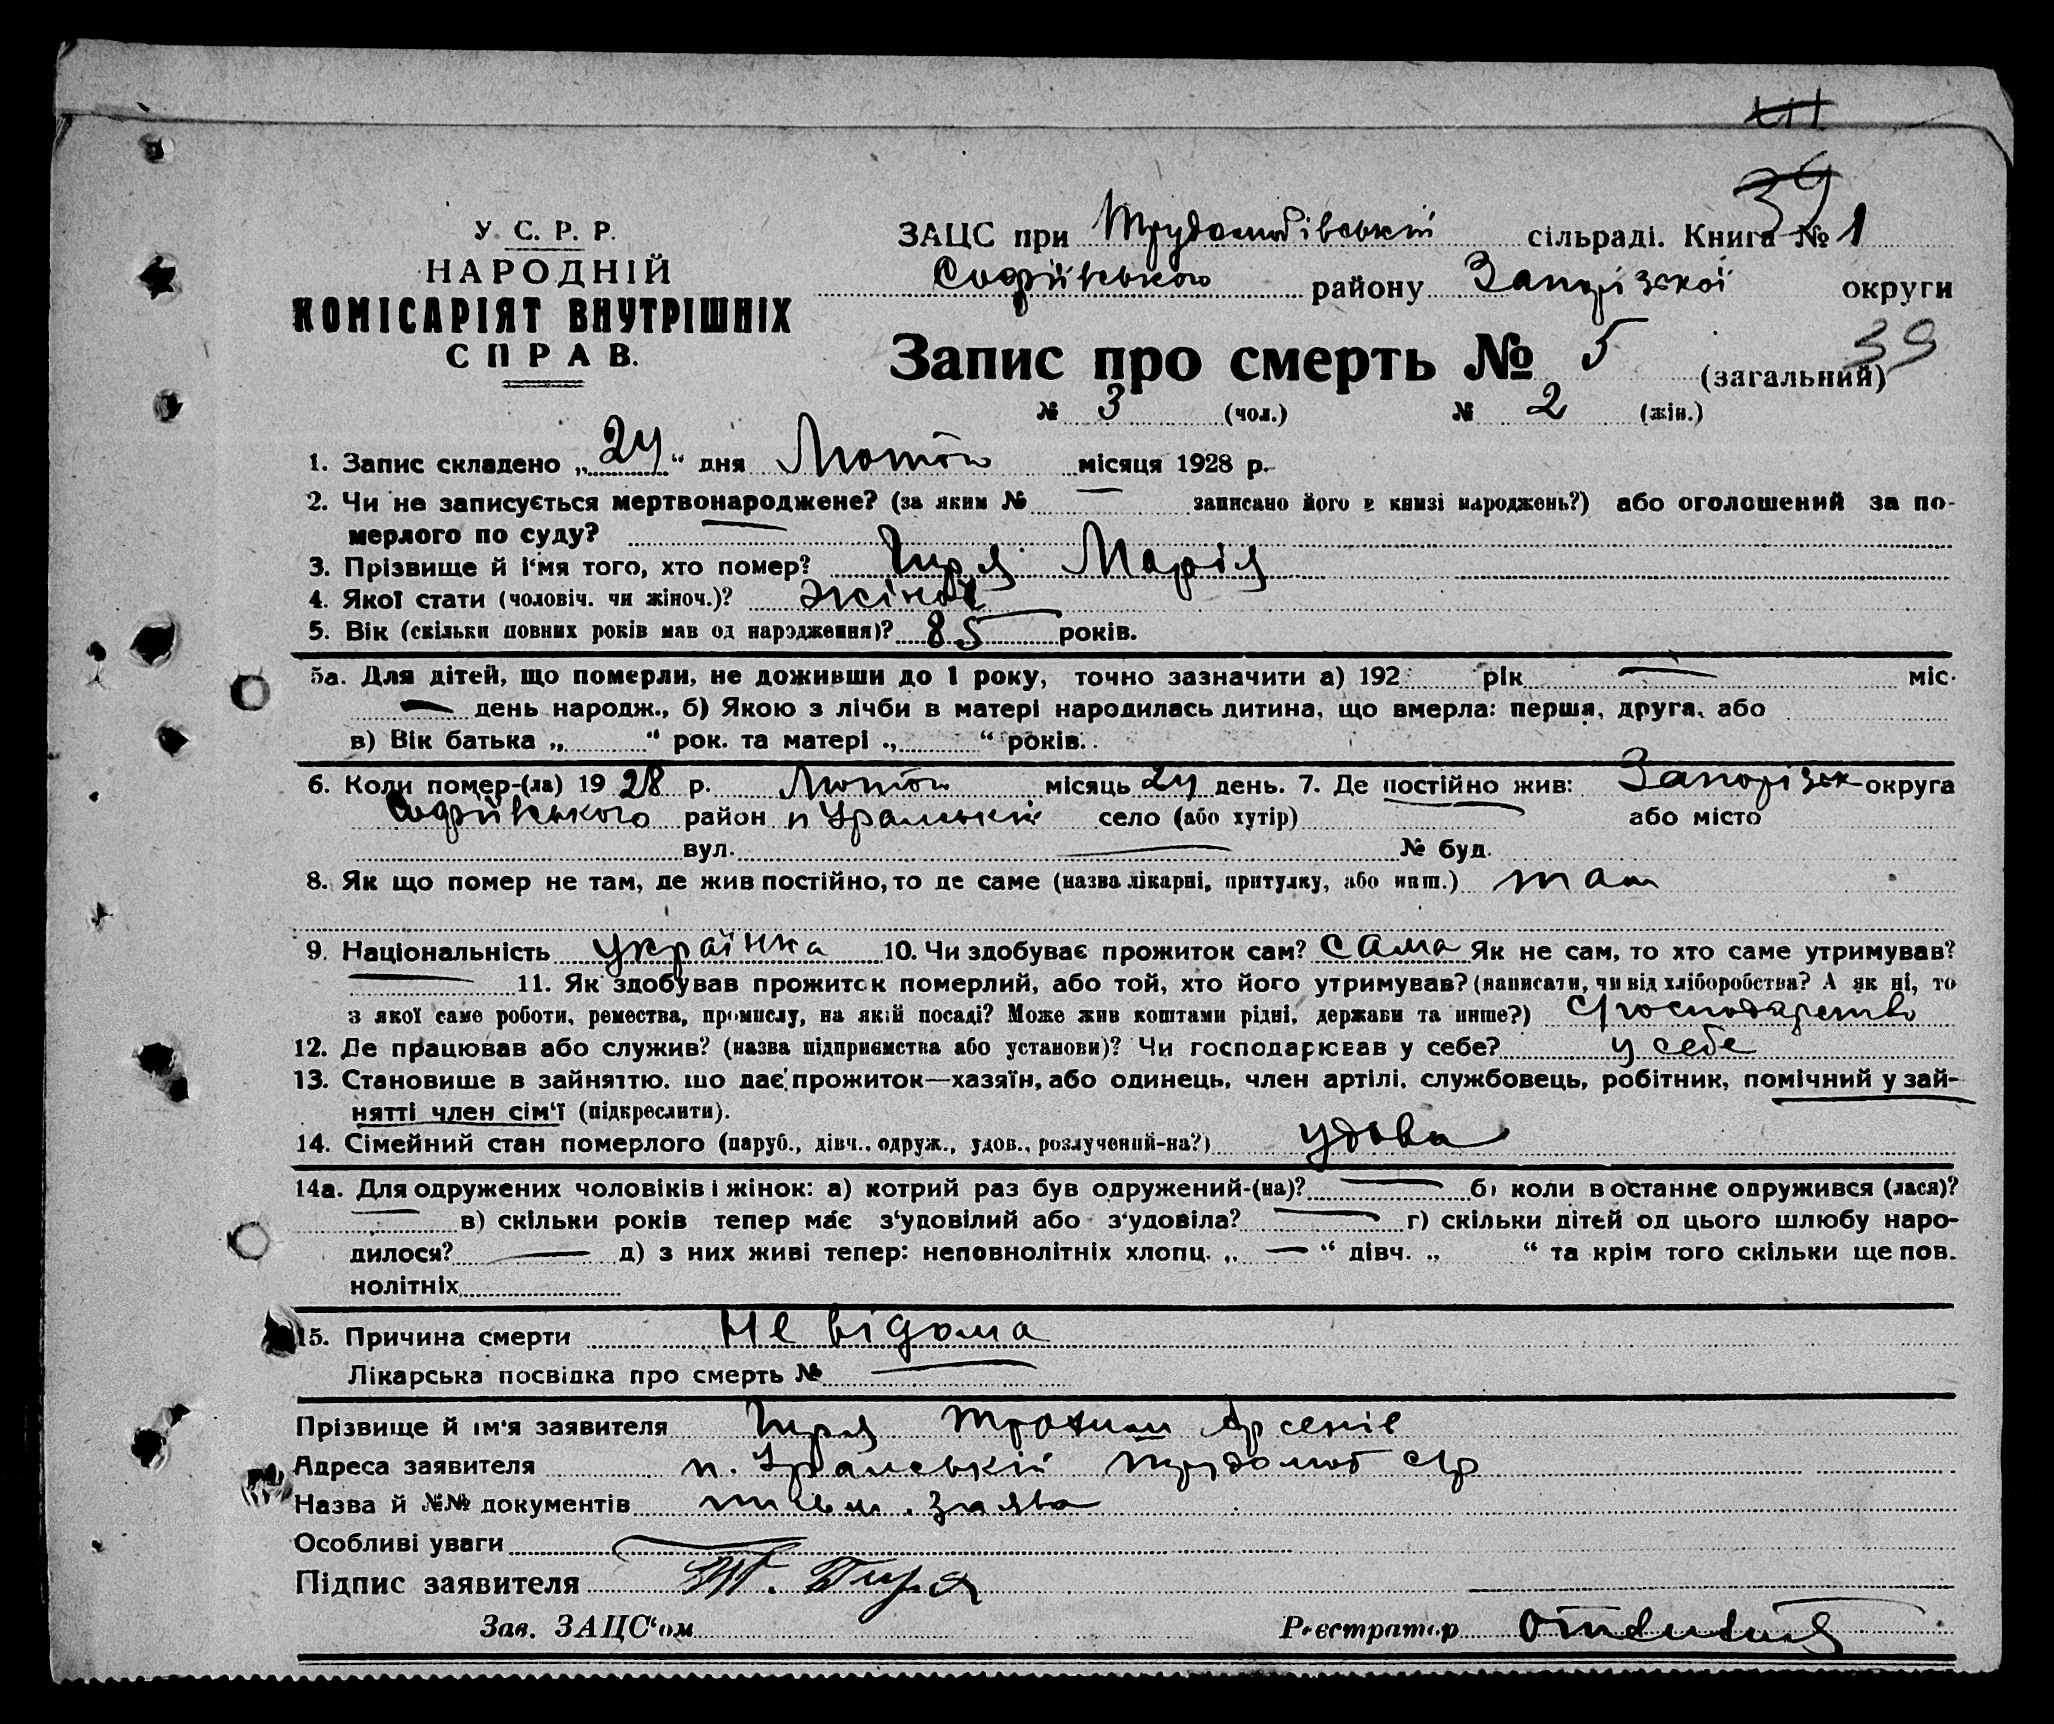 39
У. С. Р. Р.
НАРОДНІЙ
КОМІСАРІЯТ ВНУТРІШНІХ
СПРАВ.
ЗАЦС при Трудолюбівській сільраді. Книга № 1
Софіївського району Запорізскої округи
Запис про смерть № 5 (загальний) 39
№ 3 (чол.) № 2 (жін.)
1. Запис складено „24“ дня Лютого місяця 1928 р.
2. Чи не записується мертвонароджене? (за яким № — записано його в книзі народжень?) або оголошений за по-
мерлого по суду? —
3. Прізвище й і'мя того, хто помер? Гиря Марія
4. Якої стати (чоловіч. чи жіноч.)? жіноч
5. Вік (скільки повних років мав од народження)? 85 років.
5а. Для дітей, що померли, не доживши до 1 року, точно зазначити а) 192 рік — міс.
— день народж., б) Якою з лічби в матері народилась дитина, що вмерла: перша, друга, або
в) Вік батька „ “ рок. та матері „ “ років.
6. Коли помер-(ла) 1928 р. Лютого місяць 24 день. 7. Де постійно жив: Запорізск округа
Софіївського район п Уральскій село (або хутір) — або місто
вул. — № буд.
8. Як що помер не там, де жив постійно, то де саме (назва лікарні, притулку, або инш.) там
9. Національність українка 10. Чи здобуває прожиток сам? сама Як не сам, то хто саме утримував?
— 11. Як здобував прожиток померлий, або той, хто його утримував? (написати, чи від хліборобства? А як ні, то
з якої саме роботи, ремества, промислу, на якій посаді? Може жив коштами рідні, держави та инше?) С/господарство
12. Де працював або служив? (назва підприємства або установи)? Чи господарював у себе? у себе
13. Становище в зайняттю, що дає прожиток—хазяїн, або одинець, член артілі, службовець, робітник, помічний у зай-
нятті член сім'ї (підкреслити).
14. Сімейний стан померлого (паруб., дівч., одруж., удов., розлучений-на?) удова
14а. Для одружених чоловіків і жінок: а) котрий раз був одружений-(на)? — б) коли в останнє одружився (лася)?
— в) скільки років тепер має з'удовілий або з'удовіла? — г) скільки дітей од цього шлюбу наро-
дилося? — д) з них живі тепер: неповнолітніх хлопц. „ — “ дівч. „ “ та крім того скільки ще пов.
нолітніх
15. Причина смерти Не відома
Лікарська посвідка про смерть № —
Прізвище й ім'я заявителя Гиря Трохим Арсенів
Адреса заявителя п. Уральській Трудолюб с/р
Назва й №№ документів письм. заява
Особливі уваги —
Підпис заявителя Т. Гиря
Зав. ЗАЦС'ом Реєстратор